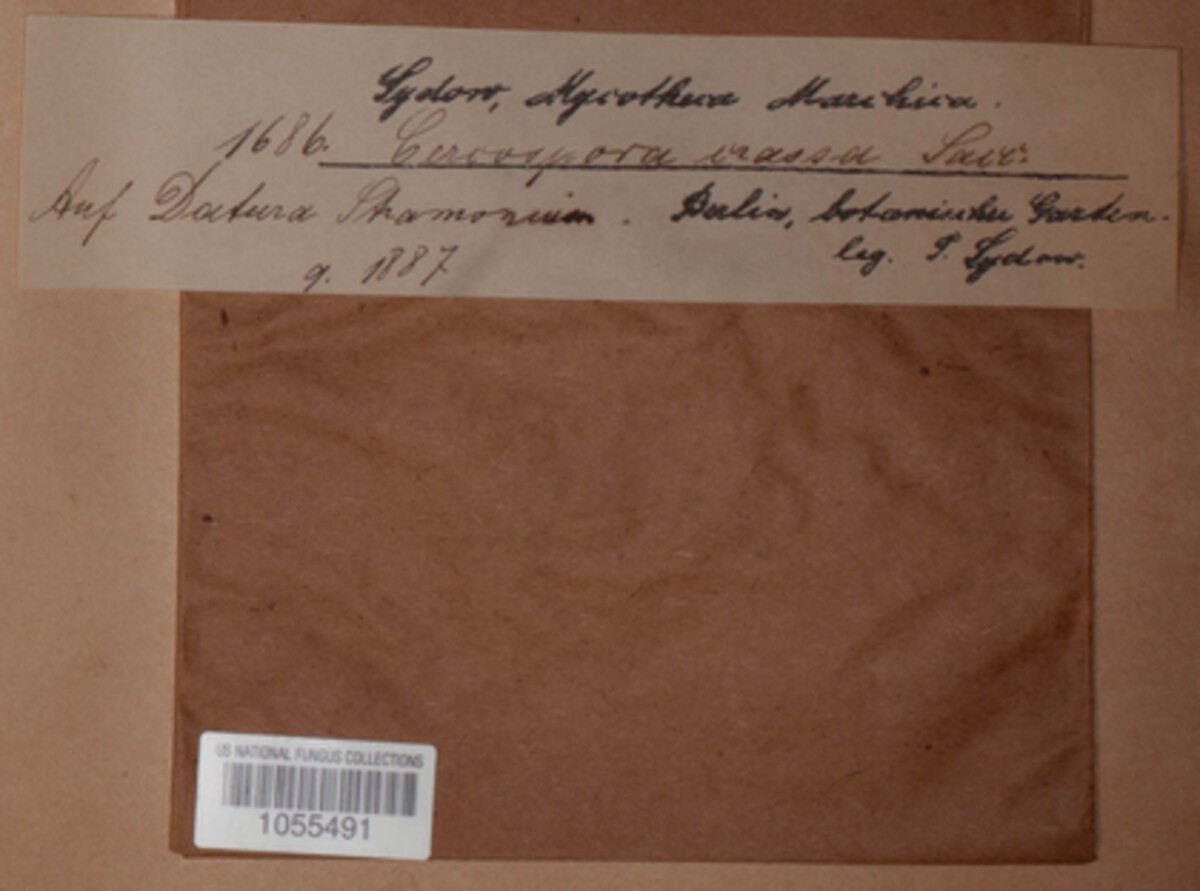 Sydow, Mycotheca Marchica.
1686. Cercospora crassa Sacc.
Auf Datura Stramonium. Berlin, botanischer Garten.
9. 1887. leg. P. Sydow.
US NATIONAL FUNGUS COLLECTIONS
1055491